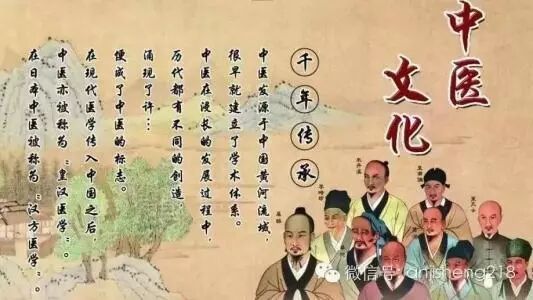 中医
文化
千年传承
中医发源于中国黄河流域,
很早就建立了学术体系。
中医在漫长的发展过程中,
历代都有不同的创造,
涌现了许…
便成了中医的标志。
在现代医学传入中国之后,
中医亦被称为“皇汉医学”。
在日本中医被称为“汉方医学”。
朱丹溪
李时珍
微信号: